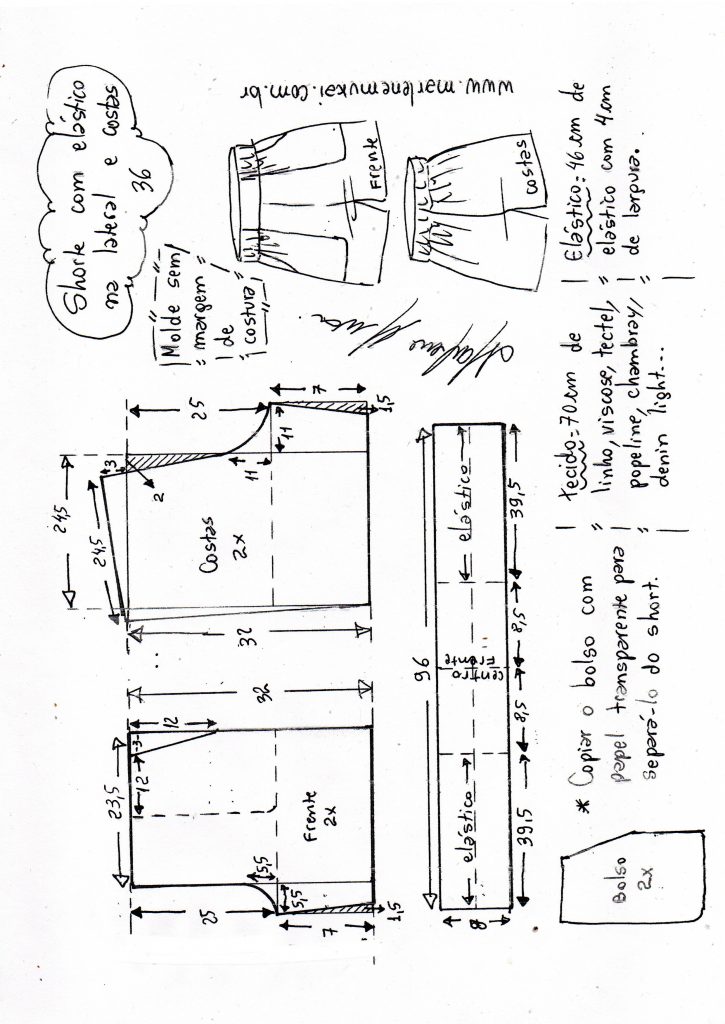 Shorte com elástico
na lateral e costas
36
www.marlenemukai.com.br
Molde sem
margem
de
costura
Frente
costas
23,5
3
12
12
32
25
5,5
5,5
7
1,5
Frente
2x
24,5
24,5
3
2
25
11
11
7
1,5
32
Costas
2x
96
elástico
centro
Frente
elástico
8
39,5
8,5
8,5
39,5
Bolso
2x
* Copiar o bolso com
papel transparente para
separá-lo do short.
tecido=70cm de
linho, viscose, tectel,
popeline, chambray,
denin light...
Elástico=46cm de
elástico com 4cm
de largura.